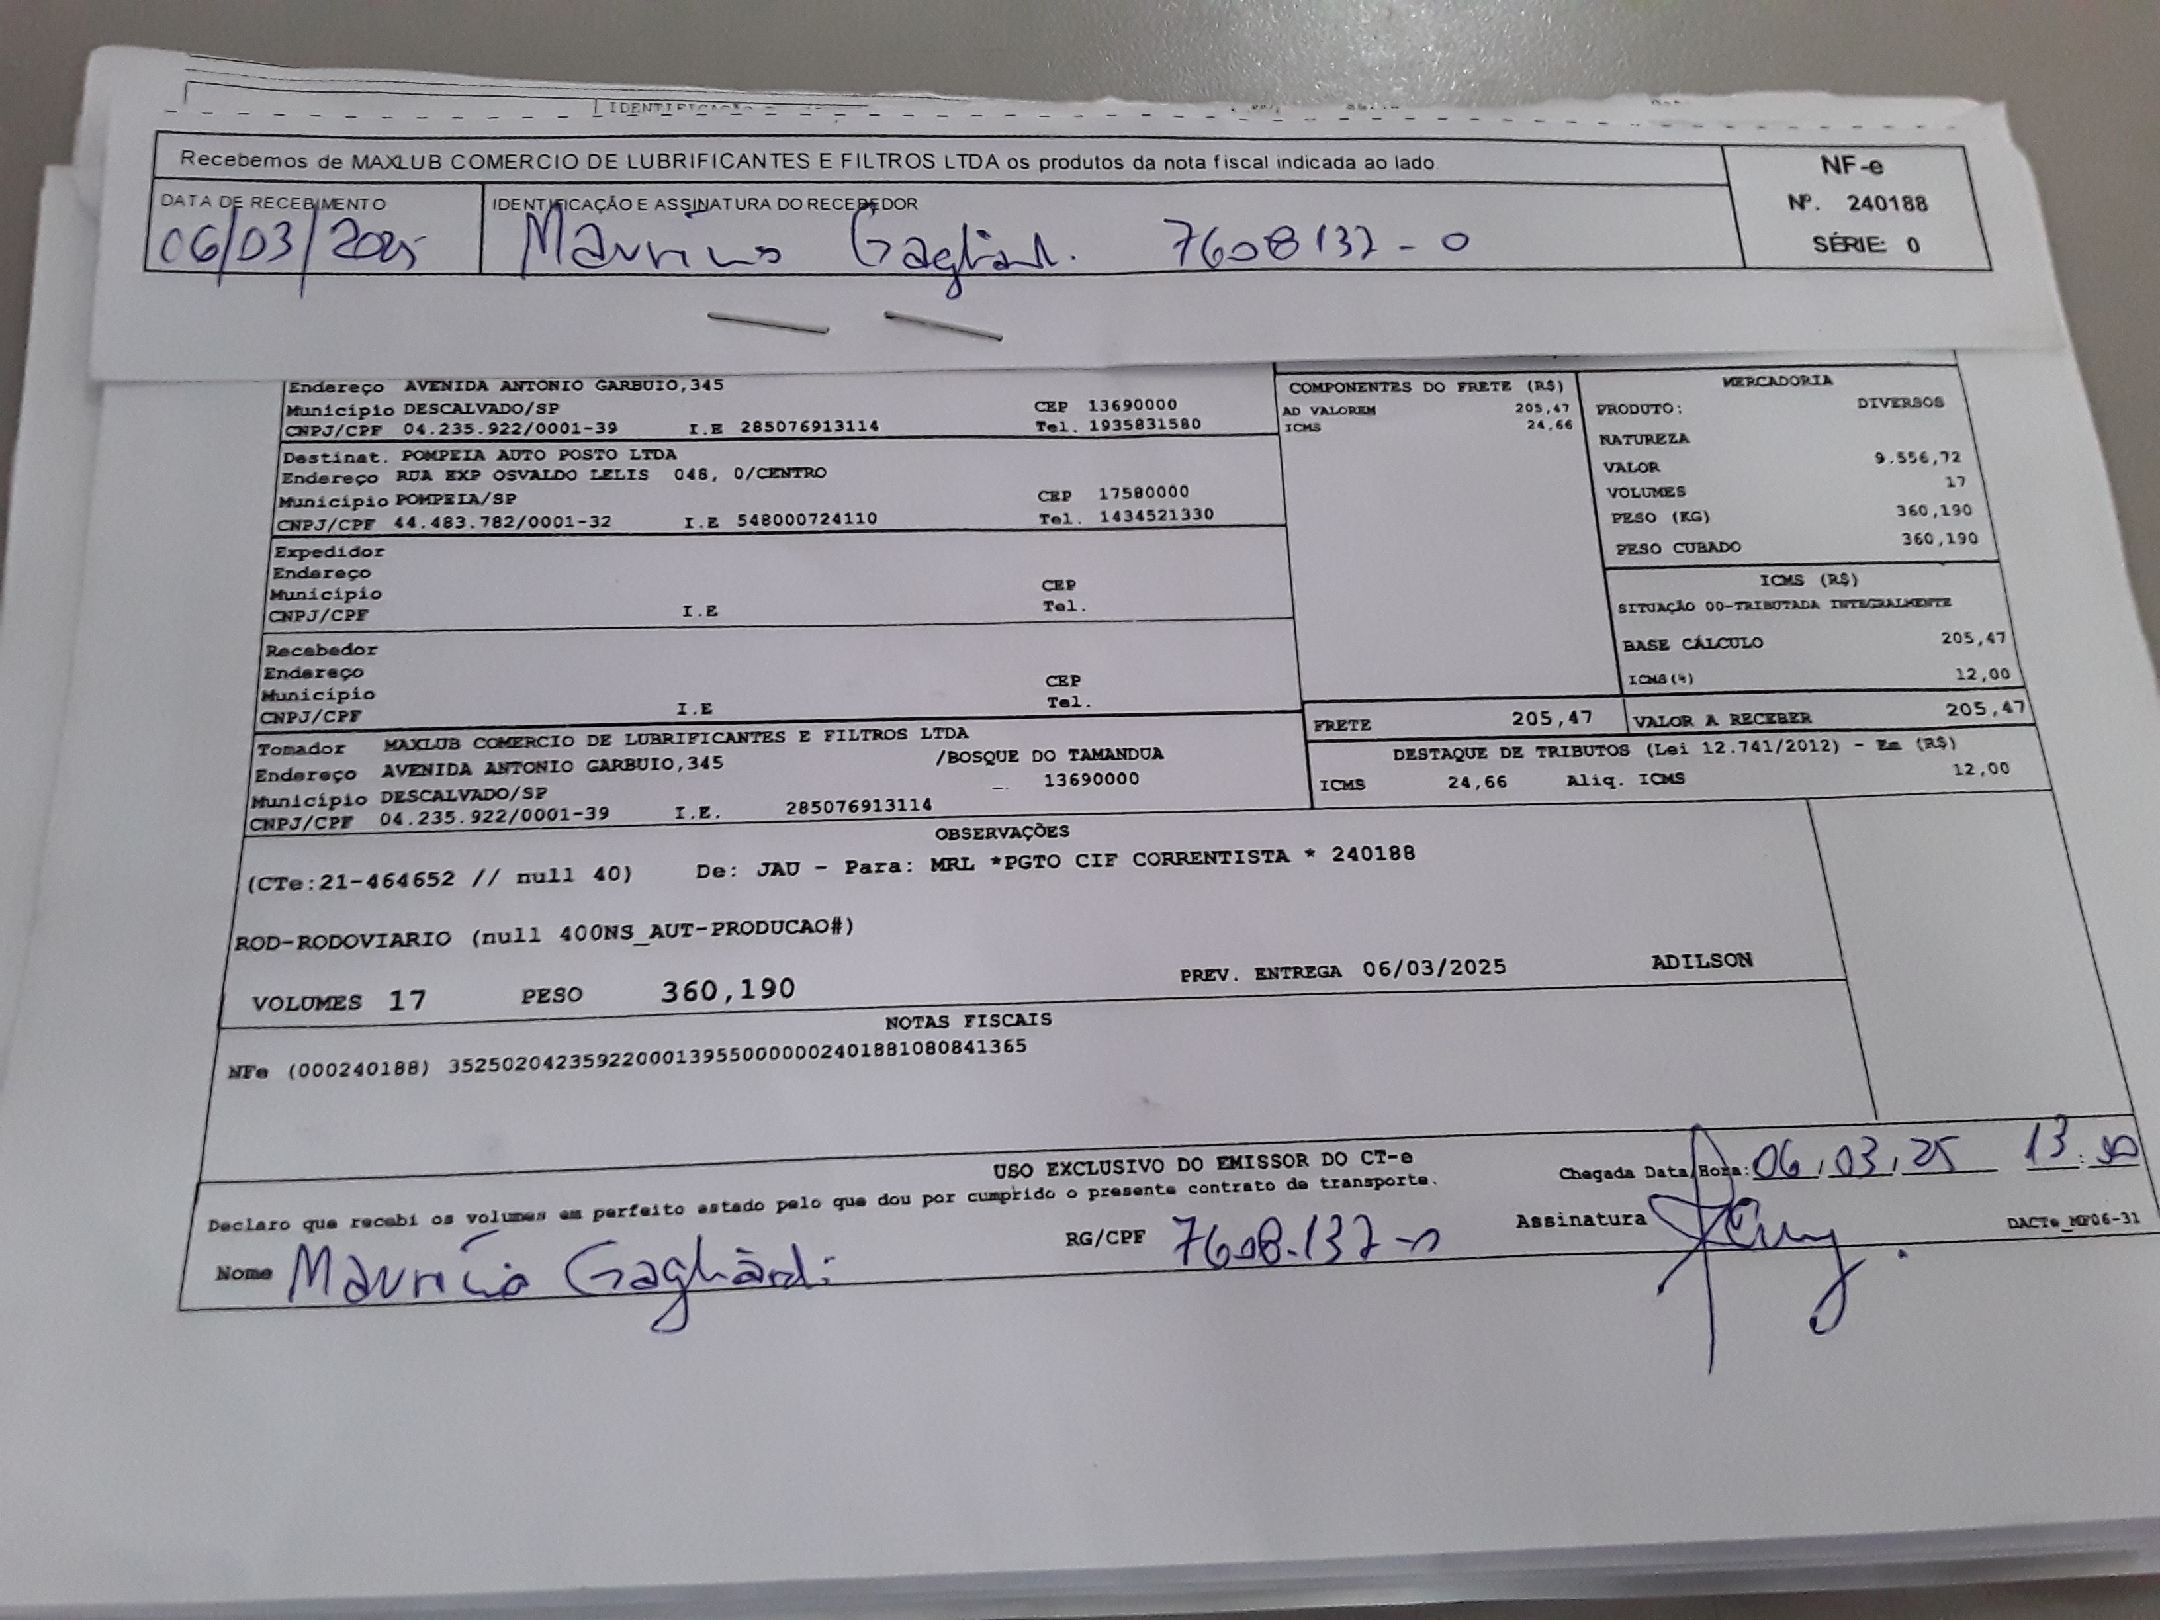 Recebemos de MAXLUB COMERCIO DE LUBRIFICANTES E FILTROS LTDA os produtos da nota fiscal indicada ao lado.
NF-e
Nº. 240188
SÉRIE: 0
DATA DE RECEBIMENTO
06/03/2025
IDENTIFICAÇÃO E ASSINATURA DO RECEBEDOR
Maurício Gagliardi 7608137-0
Endereço AVENIDA ANTONIO GARBUIO,345
Município DESCALVADO/SP CEP 13690000
CNPJ/CPF 04.235.922/0001-39 I.E 285076913114 Tel. 1935831580
Destinat. POMPEIA AUTO POSTO LTDA
Endereço RUA EXP OSVALDO LELIS 048, 0/CENTRO
Município POMPEIA/SP CEP 17580000
CNPJ/CPF 44.483.782/0001-32 I.E 548000724110 Tel. 1434521330
Expedidor
Endereço
Município CEP
CNPJ/CPF I.E Tel.
Recebedor
Endereço
Município CEP
CNPJ/CPF I.E Tel.
Tomador MAXLUB COMERCIO DE LUBRIFICANTES E FILTROS LTDA
Endereço AVENIDA ANTONIO GARBUIO,345 /BOSQUE DO TAMANDUA
Município DESCALVADO/SP 13690000
CNPJ/CPF 04.235.922/0001-39 I.E. 285076913114
COMPONENTES DO FRETE (R$)
AD VALOREM 205,47
ICMS 24,66
MERCADORIA
PRODUTO: DIVERSOS
NATUREZA
VALOR 9.556,72
VOLUMES 17
PESO (KG) 360,190
PESO CUBADO 360,190
ICMS (R$)
SITUAÇÃO 00-TRIBUTADA INTEGRALMENTE
BASE CÁLCULO 205,47
ICMS(%) 12,00
FRETE 205,47 VALOR A RECEBER 205,47
DESTAQUE DE TRIBUTOS (Lei 12.741/2012) - Em (R$)
ICMS 24,66 Aliq. ICMS 12,00
OBSERVAÇÕES
(CTe:21-464652 // null 40) De: JAU - Para: MRL *PGTO CIF CORRENTISTA * 240188
ROD-RODOVIARIO (null 400NS_AUT-PRODUCAO#)
VOLUMES 17 PESO 360,190 PREV. ENTREGA 06/03/2025 ADILSON
NOTAS FISCAIS
NFe (000240188) 35250204235922000139550000002401881080841365
USO EXCLUSIVO DO EMISSOR DO CT-e
Declaro que recebi os volumes em perfeito estado pelo que dou por cumprido o presente contrato de transporte.
Chegada Data/Hora: 06/03/25 13:30
Nome Maurício Gagliardi RG/CPF 7608.137-0 Assinatura
DACTe_MF06-31